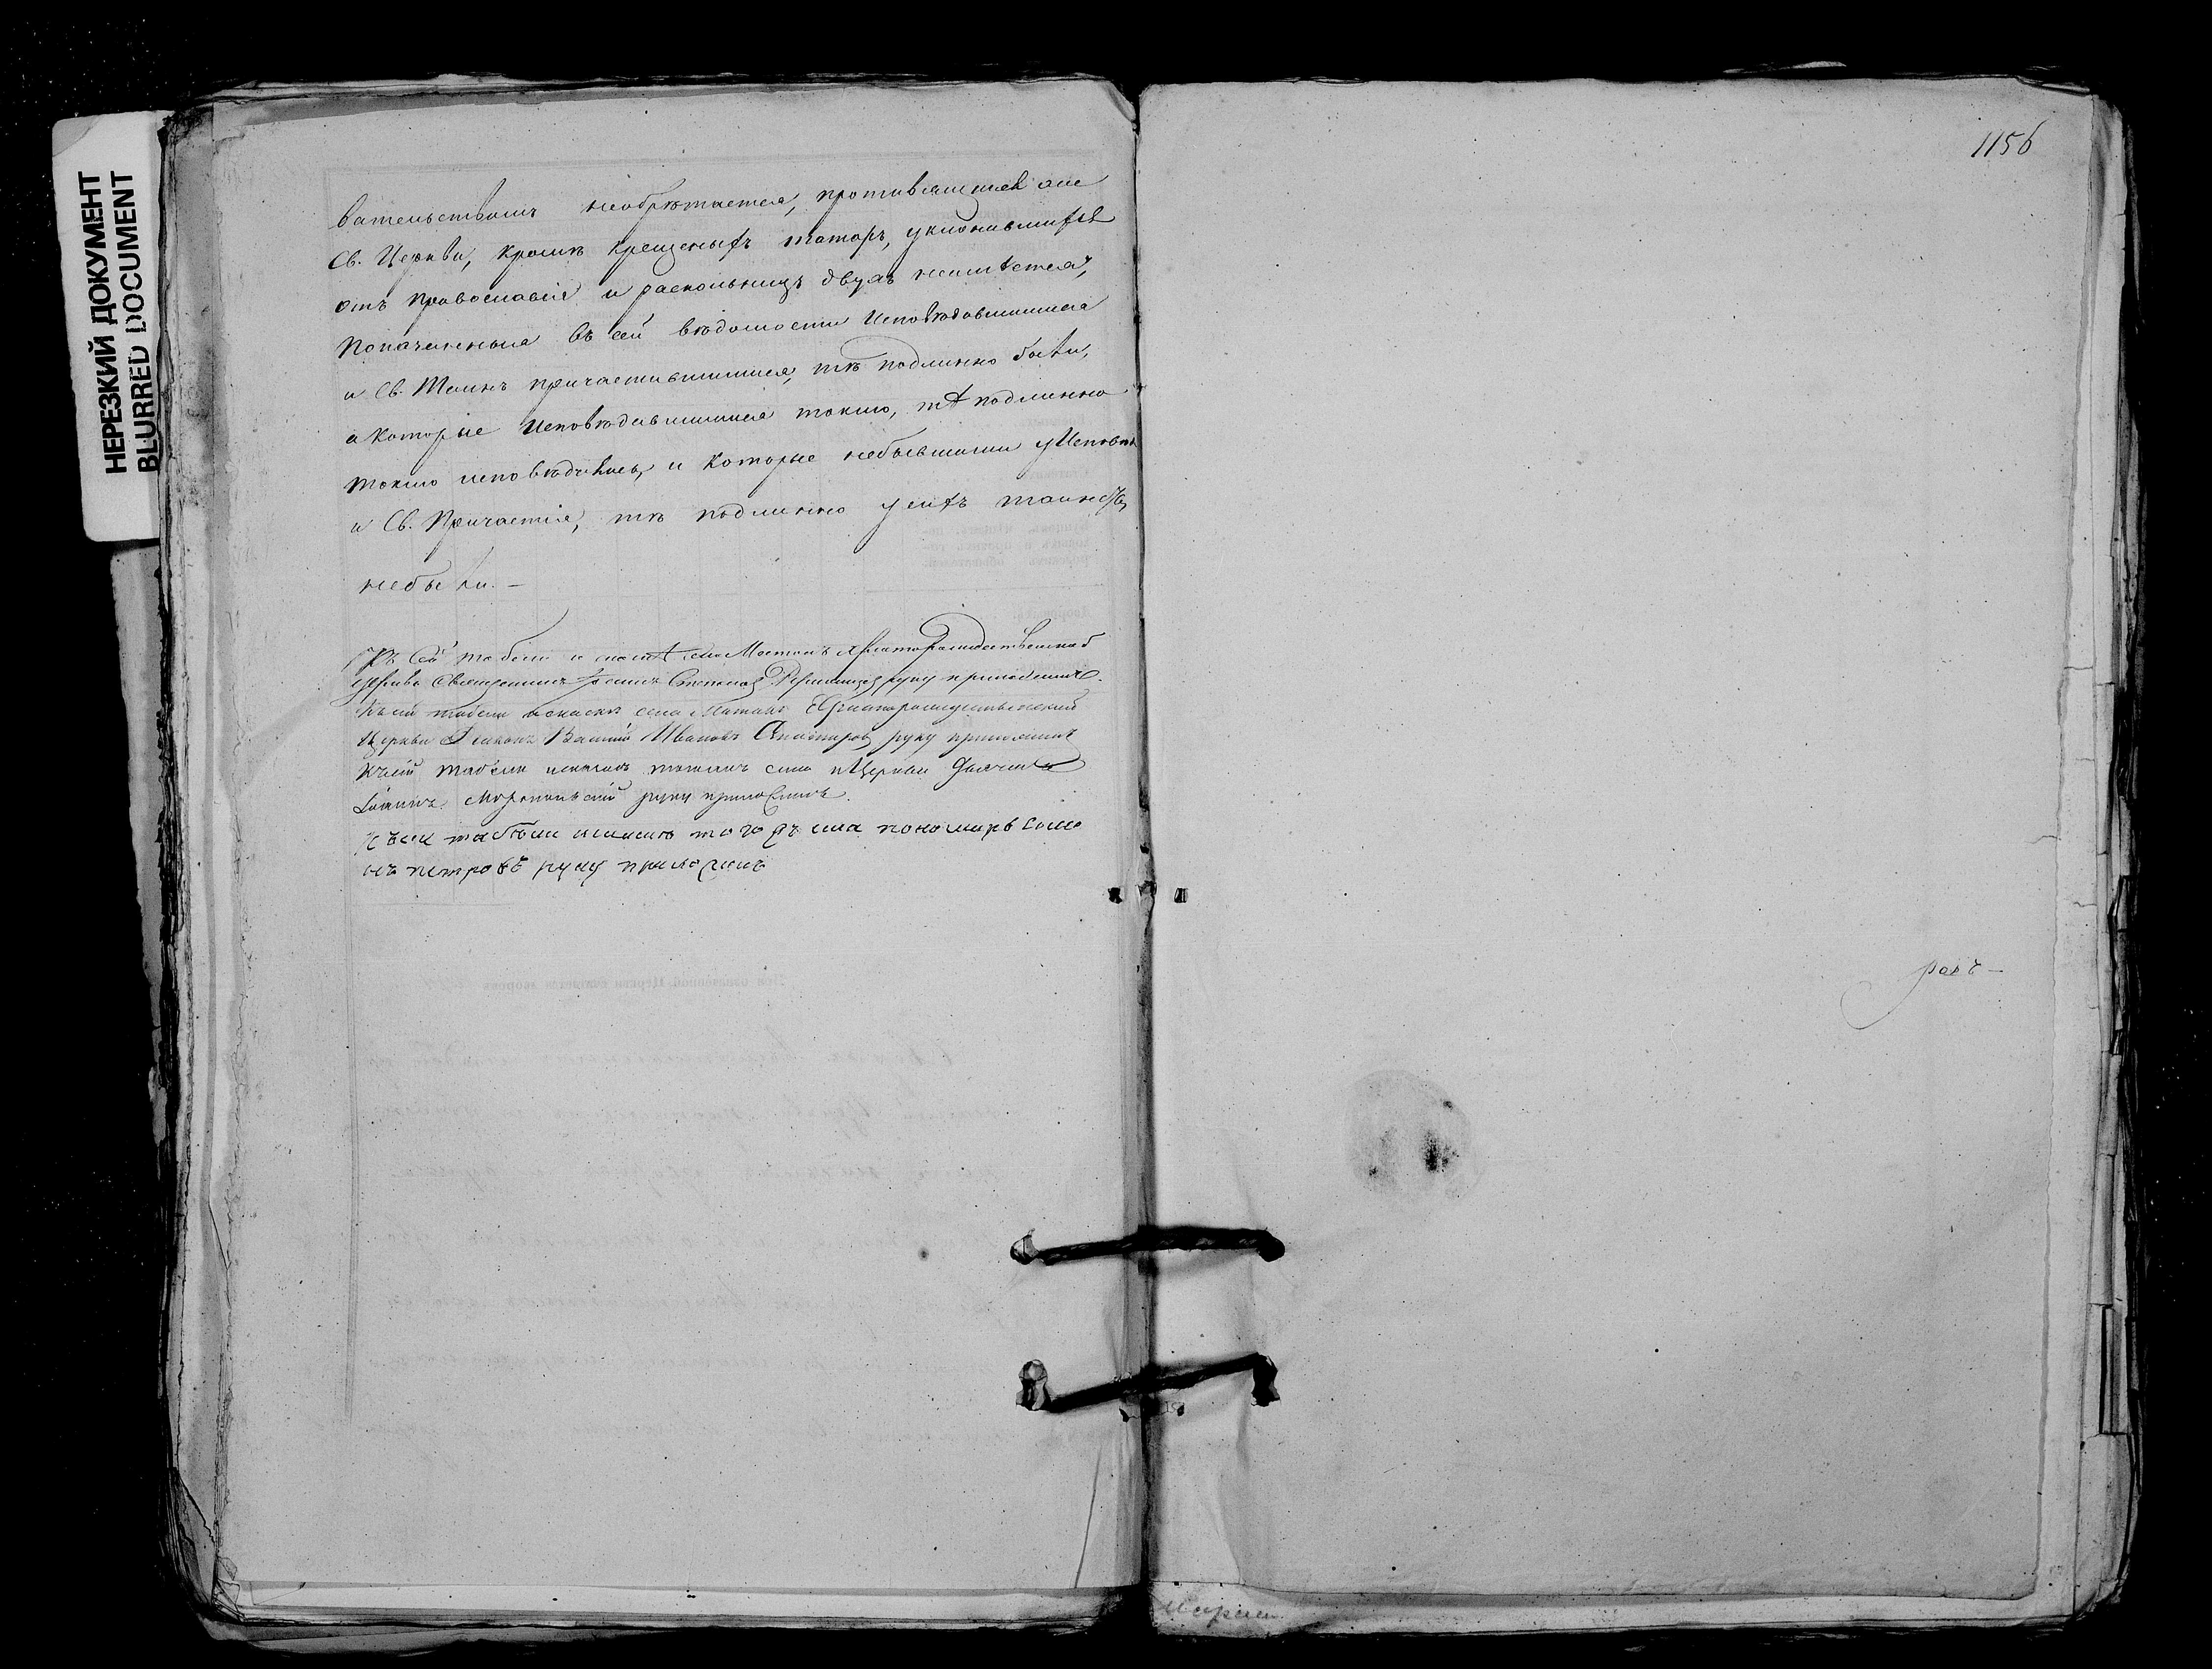 НЕРЕЗКИЙ ДОКУМЕНТ
BLURRED DOCUMENT
вательствомъ необрѣтается, противящихся же
Св. Церкви, кромѣ крещеныхъ татаръ, уклонившихся
отъ православія и раскольницъ двухъ неимѣется,
показанныя въ сей вѣдомости Исповѣдавшимися
и Св. Таинъ причастившимися, тѣ подлинно были,
а которые Исповѣдавшимися токмо, тѣ подлинно
токмо исповѣдались, и которые небывшими у Исповѣ
и Св. Причастія, тѣ подлинно у сихъ таинствъ
небыли. —
Къ сей табели и села Христорождественской
церкви Священникъ Іоаннъ руку приложилъ.
Къ сей табели села Христорождественской
Церкви Діаконъ Василій Ивановъ руку приложилъ
Къ сей табели тогожъ села Церкви Дьячекъ
руку приложилъ.
Къ сей табели тогожъ села пономарь
петровъ руку приложилъ
1156